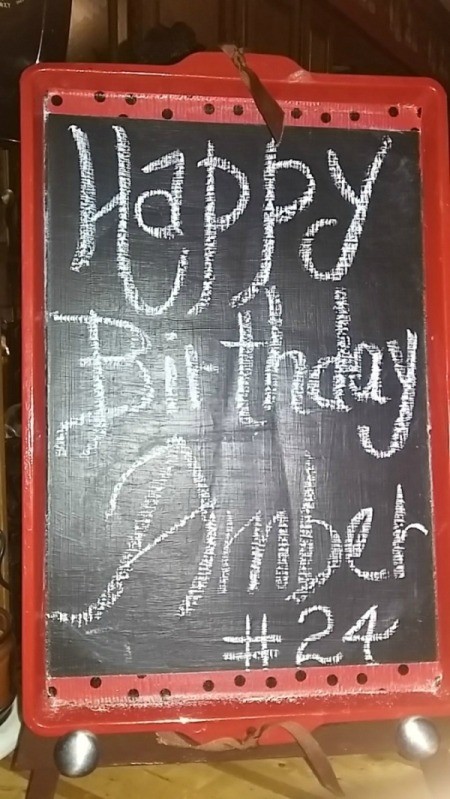 Happy
Birthday
Amber
#24